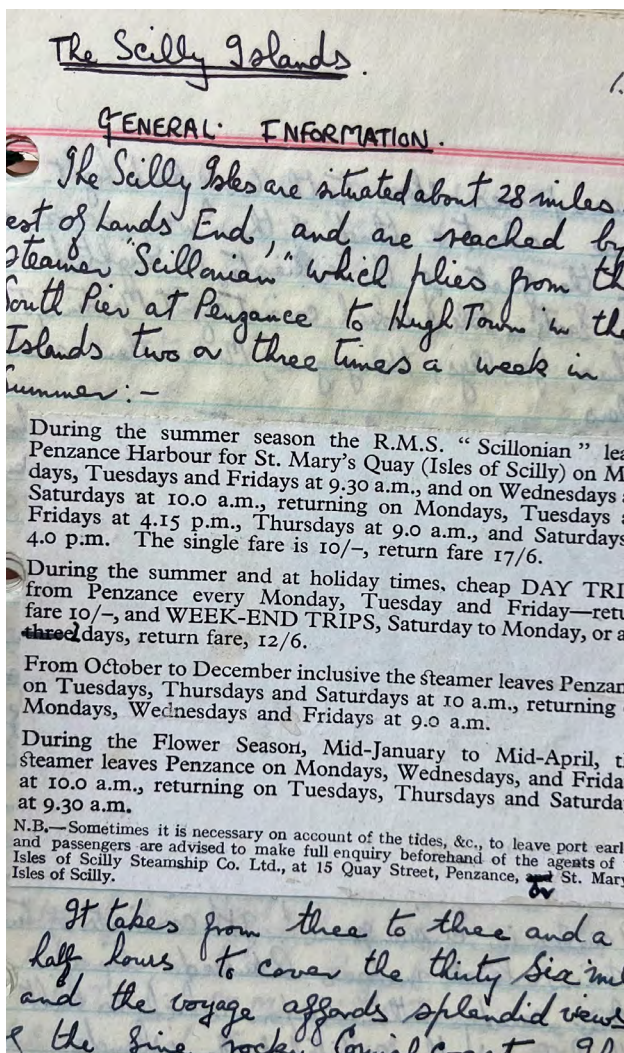 The Scilly Islands.
1.
GENERAL INFORMATION.
The Scilly Isles are situated about 28 miles
est of Lands End, and are reached by
steamer "Scillonian" which plies from th
South Pier at Penzance to Hugh Town in the
Islands two or three times a week in
Summer:-
During the summer season the R.M.S. "Scillonian" lea
Penzance Harbour for St. Mary's Quay (Isles of Scilly) on M
days, Tuesdays and Fridays at 9.30 a.m., and on Wednesdays a
Saturdays at 10.0 a.m., returning on Mondays, Tuesdays a
Fridays at 4.15 p.m., Thursdays at 9.0 a.m., and Saturdays
4.0 p.m. The single fare is 10/–, return fare 17/6.
During the summer and at holiday times, cheap DAY TRI
from Penzance every Monday, Tuesday and Friday—retu
fare 10/–, and WEEK-END TRIPS, Saturday to Monday, or a
three days, return fare, 12/6.
From October to December inclusive the steamer leaves Penzan
on Tuesdays, Thursdays and Saturdays at 10 a.m., returning
Mondays, Wednesdays and Fridays at 9.0 a.m.
During the Flower Season, Mid-January to Mid-April, t
steamer leaves Penzance on Mondays, Wednesdays, and Frida
at 10.0 a.m., returning on Tuesdays, Thursdays and Saturda
at 9.30 a.m.
N.B.—Sometimes it is necessary on account of the tides, &c., to leave port earl
and passengers are advised to make full enquiry beforehand of the agents of
Isles of Scilly Steamship Co. Ltd., at 15 Quay Street, Penzance, and or St. Mary
Isles of Scilly.
It takes from three to three and a
half hours to cover the thirty six mil
and the voyage affords splendid views
the fine rocky Cornish coast